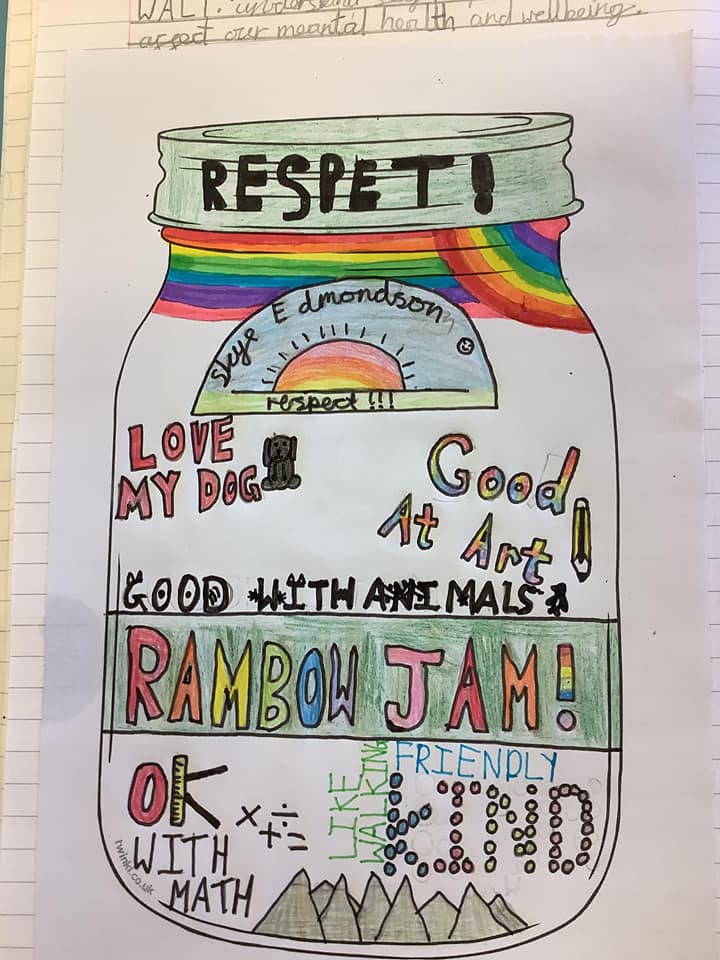 WALT: understand
affect our meantal health and wellbeing.
RESPET!
Skye Edmondson
respect!!!
LOVE
MY DOG
Good
At Art
GOOD WITH ANIMALS
RAMBOW JAM!
OK
WITH
MATH
× ÷ + =
LIKE
WALKING
FRIENDLY
KIND
twinkl.co.uk